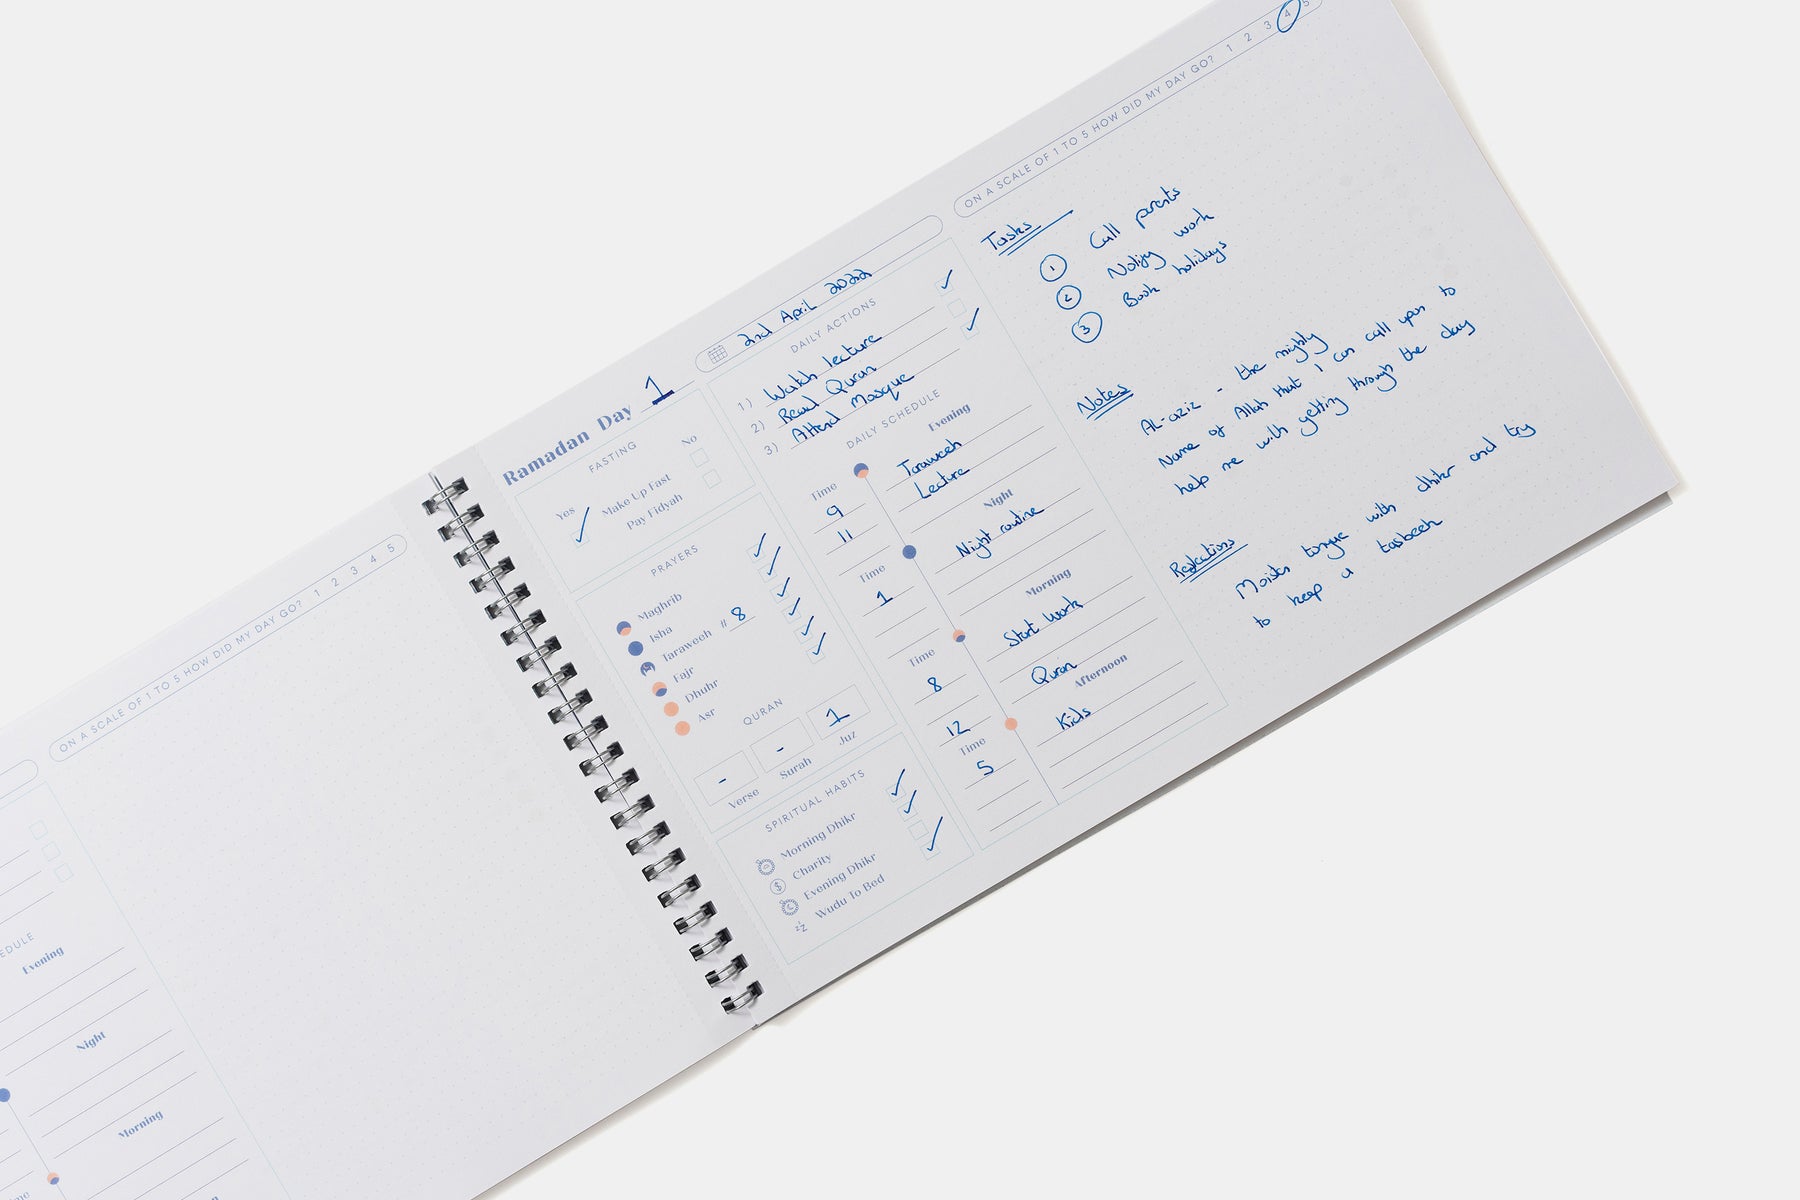 ON A SCALE OF 1 TO 5 HOW DID MY DAY GO? 1 2 3 4 5
Evening
Night
Morning
Ramadan Day 1
FASTING
Yes No
Make Up Fast
Pay Fidyah
PRAYERS
Maghrib
Isha
Taraweeh # 8
Fajr
Dhuhr
Asr
QURAN
- - 1
Verse Surah Juz
SPIRITUAL HABITS
Morning Dhikr
Charity
Evening Dhikr
Wudu To Bed
2nd April 2022
DAILY ACTIONS
1) Watch lecture
2) Read Quran
3) Attend Mosque
DAILY SCHEDULE
Evening
Time
9 Taraweeh
11 Lecture
Night
Time
1 Night routine
Morning
Time
8 Start work
12 Quran
Afternoon
Time
5 Kids
ON A SCALE OF 1 TO 5 HOW DID MY DAY GO? 1 2 3 4 5
Tasks
1 Call parents
2 Notify work
3 Book holidays
Notes
AL-aziz - the mighty
Name of Allah that I can call upon to
help me with getting through the day
Reflections
Moisten tongue with dhikr and try
to keep a tasbeeh